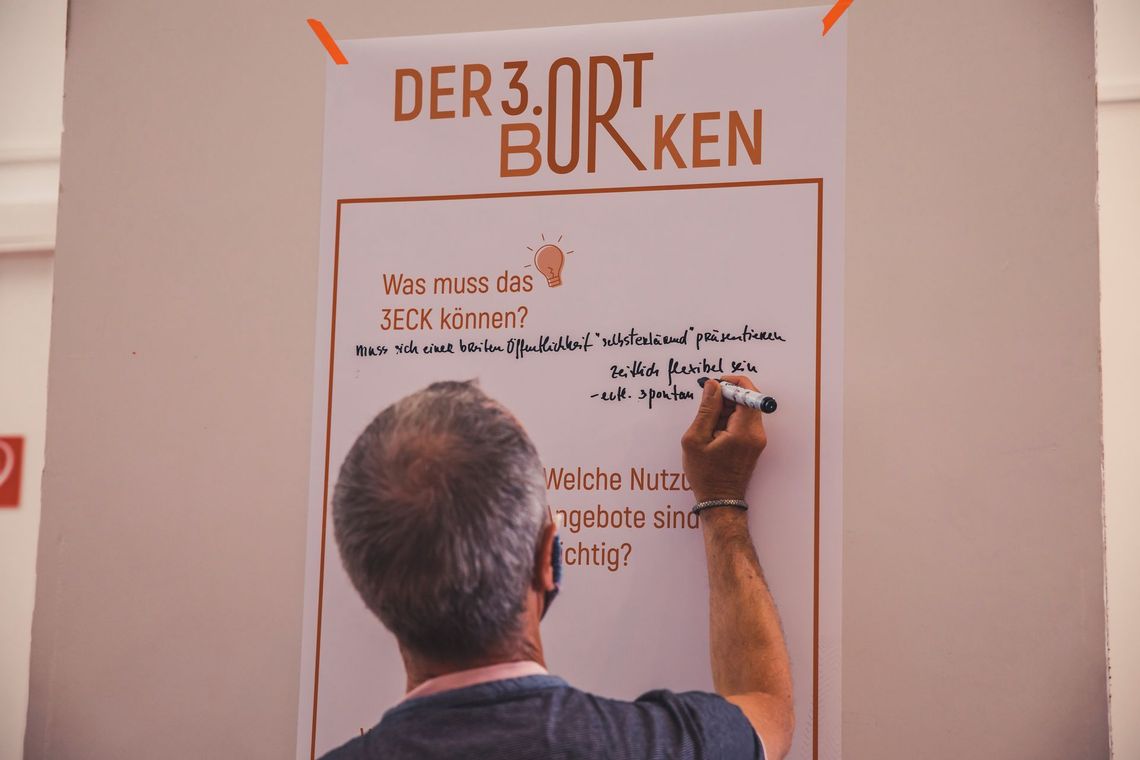 DER 3. ORT
BORKEN
Was muss das
3ECK können?
muss sich einer breiten Öffentlichkeit "selbsterklärend" präsentieren
zeitlich flexibel sein
- evtl. spontan
Welche
sind